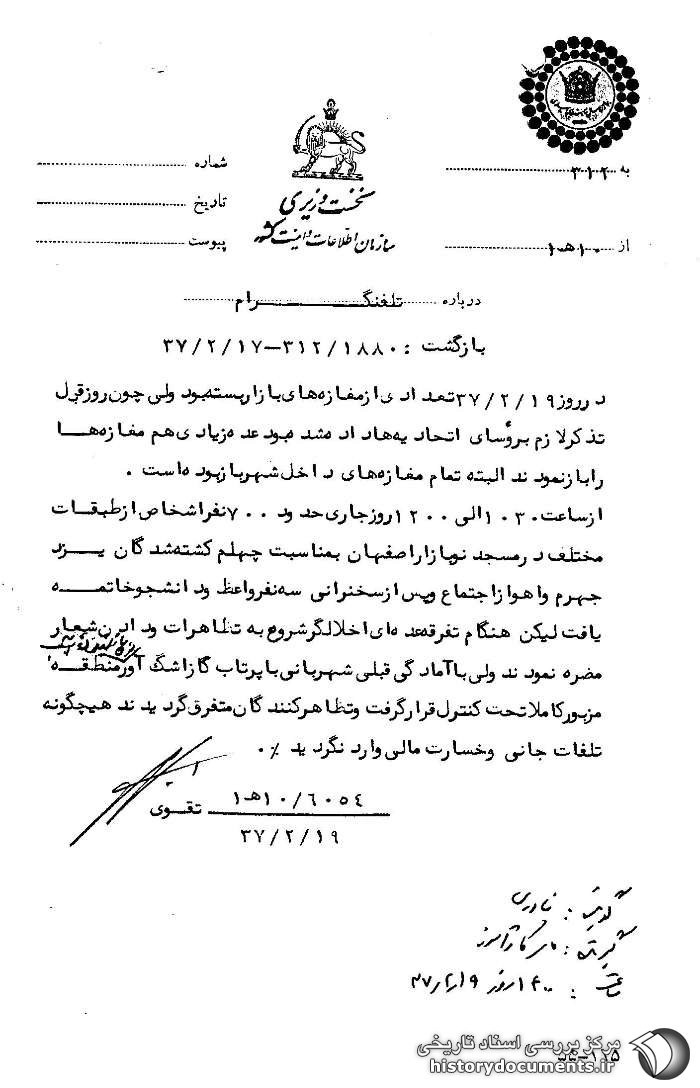 به ۳۱۲
شماره
نخست وزیری
تاریخ
سازمان اطلاعات و امنیت کشور
از ۱۰هـ۱
پیوست
درباره تلفنگرام
بازگشت : ۳۱۲/۱۸۸۰-۳۷/۲/۱۷
در روز ۳۷/۲/۱۹ تعدادی از مغازه‌های بازار بسته بود ولی چون روز قبل
تذکر لازم برؤسای اتحادیه‌ها داده شده بود عده زیادی هم مغازه‌ها
را باز نمودند البته تمام مغازه‌های داخل شهر باز بوده است .
از ساعت ۱۰۳۰ الی ۱۲۰۰ روز جاری حدود ۷۰۰ نفر اشخاص از طبقات
مختلف در مسجد نوبازار اصفهان بمناسبت چهلم کشته شدگان یزد
جهرم و اهواز اجتماع و پس از سخنرانی سه نفر واعظ و دانشجو خاتمه
یافت لیکن هنگام تفرقه عده‌ای اخلالگر شروع به تظاهرات و دادن شعار
مضره نمودند ولی با آمادگی قبلی شهربانی با پرتاب گاز اشگ آور منطقه
مزبور کاملا تحت کنترل قرار گرفت و تظاهر کنندگان متفرق گردیدند هیچگونه
تلفات جانی و خسارت مالی وارد نگردید ٪.
۱۰/۶۰۵۴هـ۱ تقوی
۳۷/۲/۱۹
گوینده : نادری
گیرنده :
ساعت : ۱۴۰۰ روز ۳۷/۲/۱۹
مرکز بررسی اسناد تاریخی
historydocuments.ir